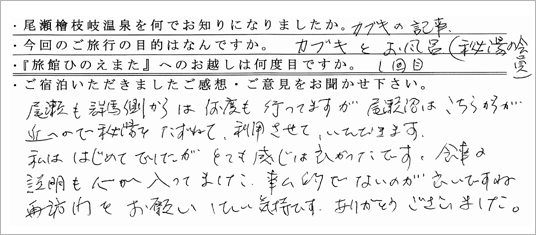 ・尾瀬檜枝岐温泉を何でお知りになりましたか。カブキの記事
・今回のご旅行の目的はなんですか。カブキとお風呂(秘湯の会員)
・『旅館ひのえまた』へのお越しは何度目ですか。1回目
・ご宿泊いただきましたご感想・ご意見をお聞かせ下さい。
尾瀬も群馬側からは何度も行ってますが尾瀬沼はこちらからが
近いので秘湯をたずねて、利用させて、いただきます。
私ははじめてでしたがとても感じは良かったです。食事の
説明も心が入ってました。事ム的でないのが良いですね
再訪問をお願いしたい気持です。ありがとうございました。